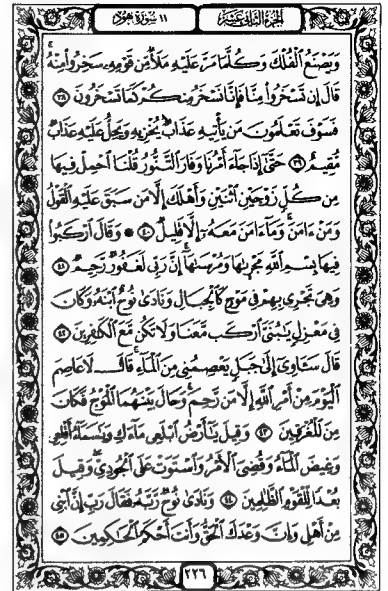 الجزء الثاني عشر ١١ سورة هود
وَيَصْنَعُ ٱلْفُلْكَ وَكُلَّمَا مَرَّ عَلَيْهِ مَلَأٌ مِّن قَوْمِهِۦ سَخِرُوا۟ مِنْهُ ۚ
قَالَ إِن تَسْخَرُوا۟ مِنَّا فَإِنَّا نَسْخَرُ مِنكُمْ كَمَا تَسْخَرُونَ ٣٨
فَسَوْفَ تَعْلَمُونَ مَن يَأْتِيهِ عَذَابٌ يُخْزِيهِ وَيَحِلُّ عَلَيْهِ عَذَابٌ
مُّقِيمٌ ٣٩ حَتَّىٰٓ إِذَا جَآءَ أَمْرُنَا وَفَارَ ٱلتَّنُّورُ قُلْنَا ٱحْمِلْ فِيهَا
مِن كُلٍّ زَوْجَيْنِ ٱثْنَيْنِ وَأَهْلَكَ إِلَّا مَن سَبَقَ عَلَيْهِ ٱلْقَوْلُ
وَمَنْ ءَامَنَ ۚ وَمَآ ءَامَنَ مَعَهُۥٓ إِلَّا قَلِيلٌ ٤٠ ۞ وَقَالَ ٱرْكَبُوا۟
فِيهَا بِسْمِ ٱللَّهِ مَجْر۪ىٰهَا وَمُرْسَىٰهَآ ۚ إِنَّ رَبِّى لَغَفُورٌ رَّحِيمٌ ٤١
وَهِىَ تَجْرِى بِهِمْ فِى مَوْجٍ كَٱلْجِبَالِ وَنَادَىٰ نُوحٌ ٱبْنَهُۥ وَكَانَ
فِى مَعْزِلٍ يَٰبُنَىَّ ٱرْكَب مَّعَنَا وَلَا تَكُن مَّعَ ٱلْكَٰفِرِينَ ٤٢
قَالَ سَـَٔاوِىٓ إِلَىٰ جَبَلٍ يَعْصِمُنِى مِنَ ٱلْمَآءِ ۚ قَالَ لَا عَاصِمَ
ٱلْيَوْمَ مِنْ أَمْرِ ٱللَّهِ إِلَّا مَن رَّحِمَ ۚ وَحَالَ بَيْنَهُمَا ٱلْمَوْجُ فَكَانَ
مِنَ ٱلْمُغْرَقِينَ ٤٣ وَقِيلَ يَٰٓأَرْضُ ٱبْلَعِى مَآءَكِ وَيَٰسَمَآءُ أَقْلِعِى
وَغِيضَ ٱلْمَآءُ وَقُضِىَ ٱلْأَمْرُ وَٱسْتَوَتْ عَلَى ٱلْجُودِىِّ ۖ وَقِيلَ
بُعْدًا لِّلْقَوْمِ ٱلظَّٰلِمِينَ ٤٤ وَنَادَىٰ نُوحٌ رَّبَّهُۥ فَقَالَ رَبِّ إِنَّ ٱبْنِى
مِنْ أَهْلِى وَإِنَّ وَعْدَكَ ٱلْحَقُّ وَأَنتَ أَحْكَمُ ٱلْحَٰكِمِينَ ٤٥
٢٢٦